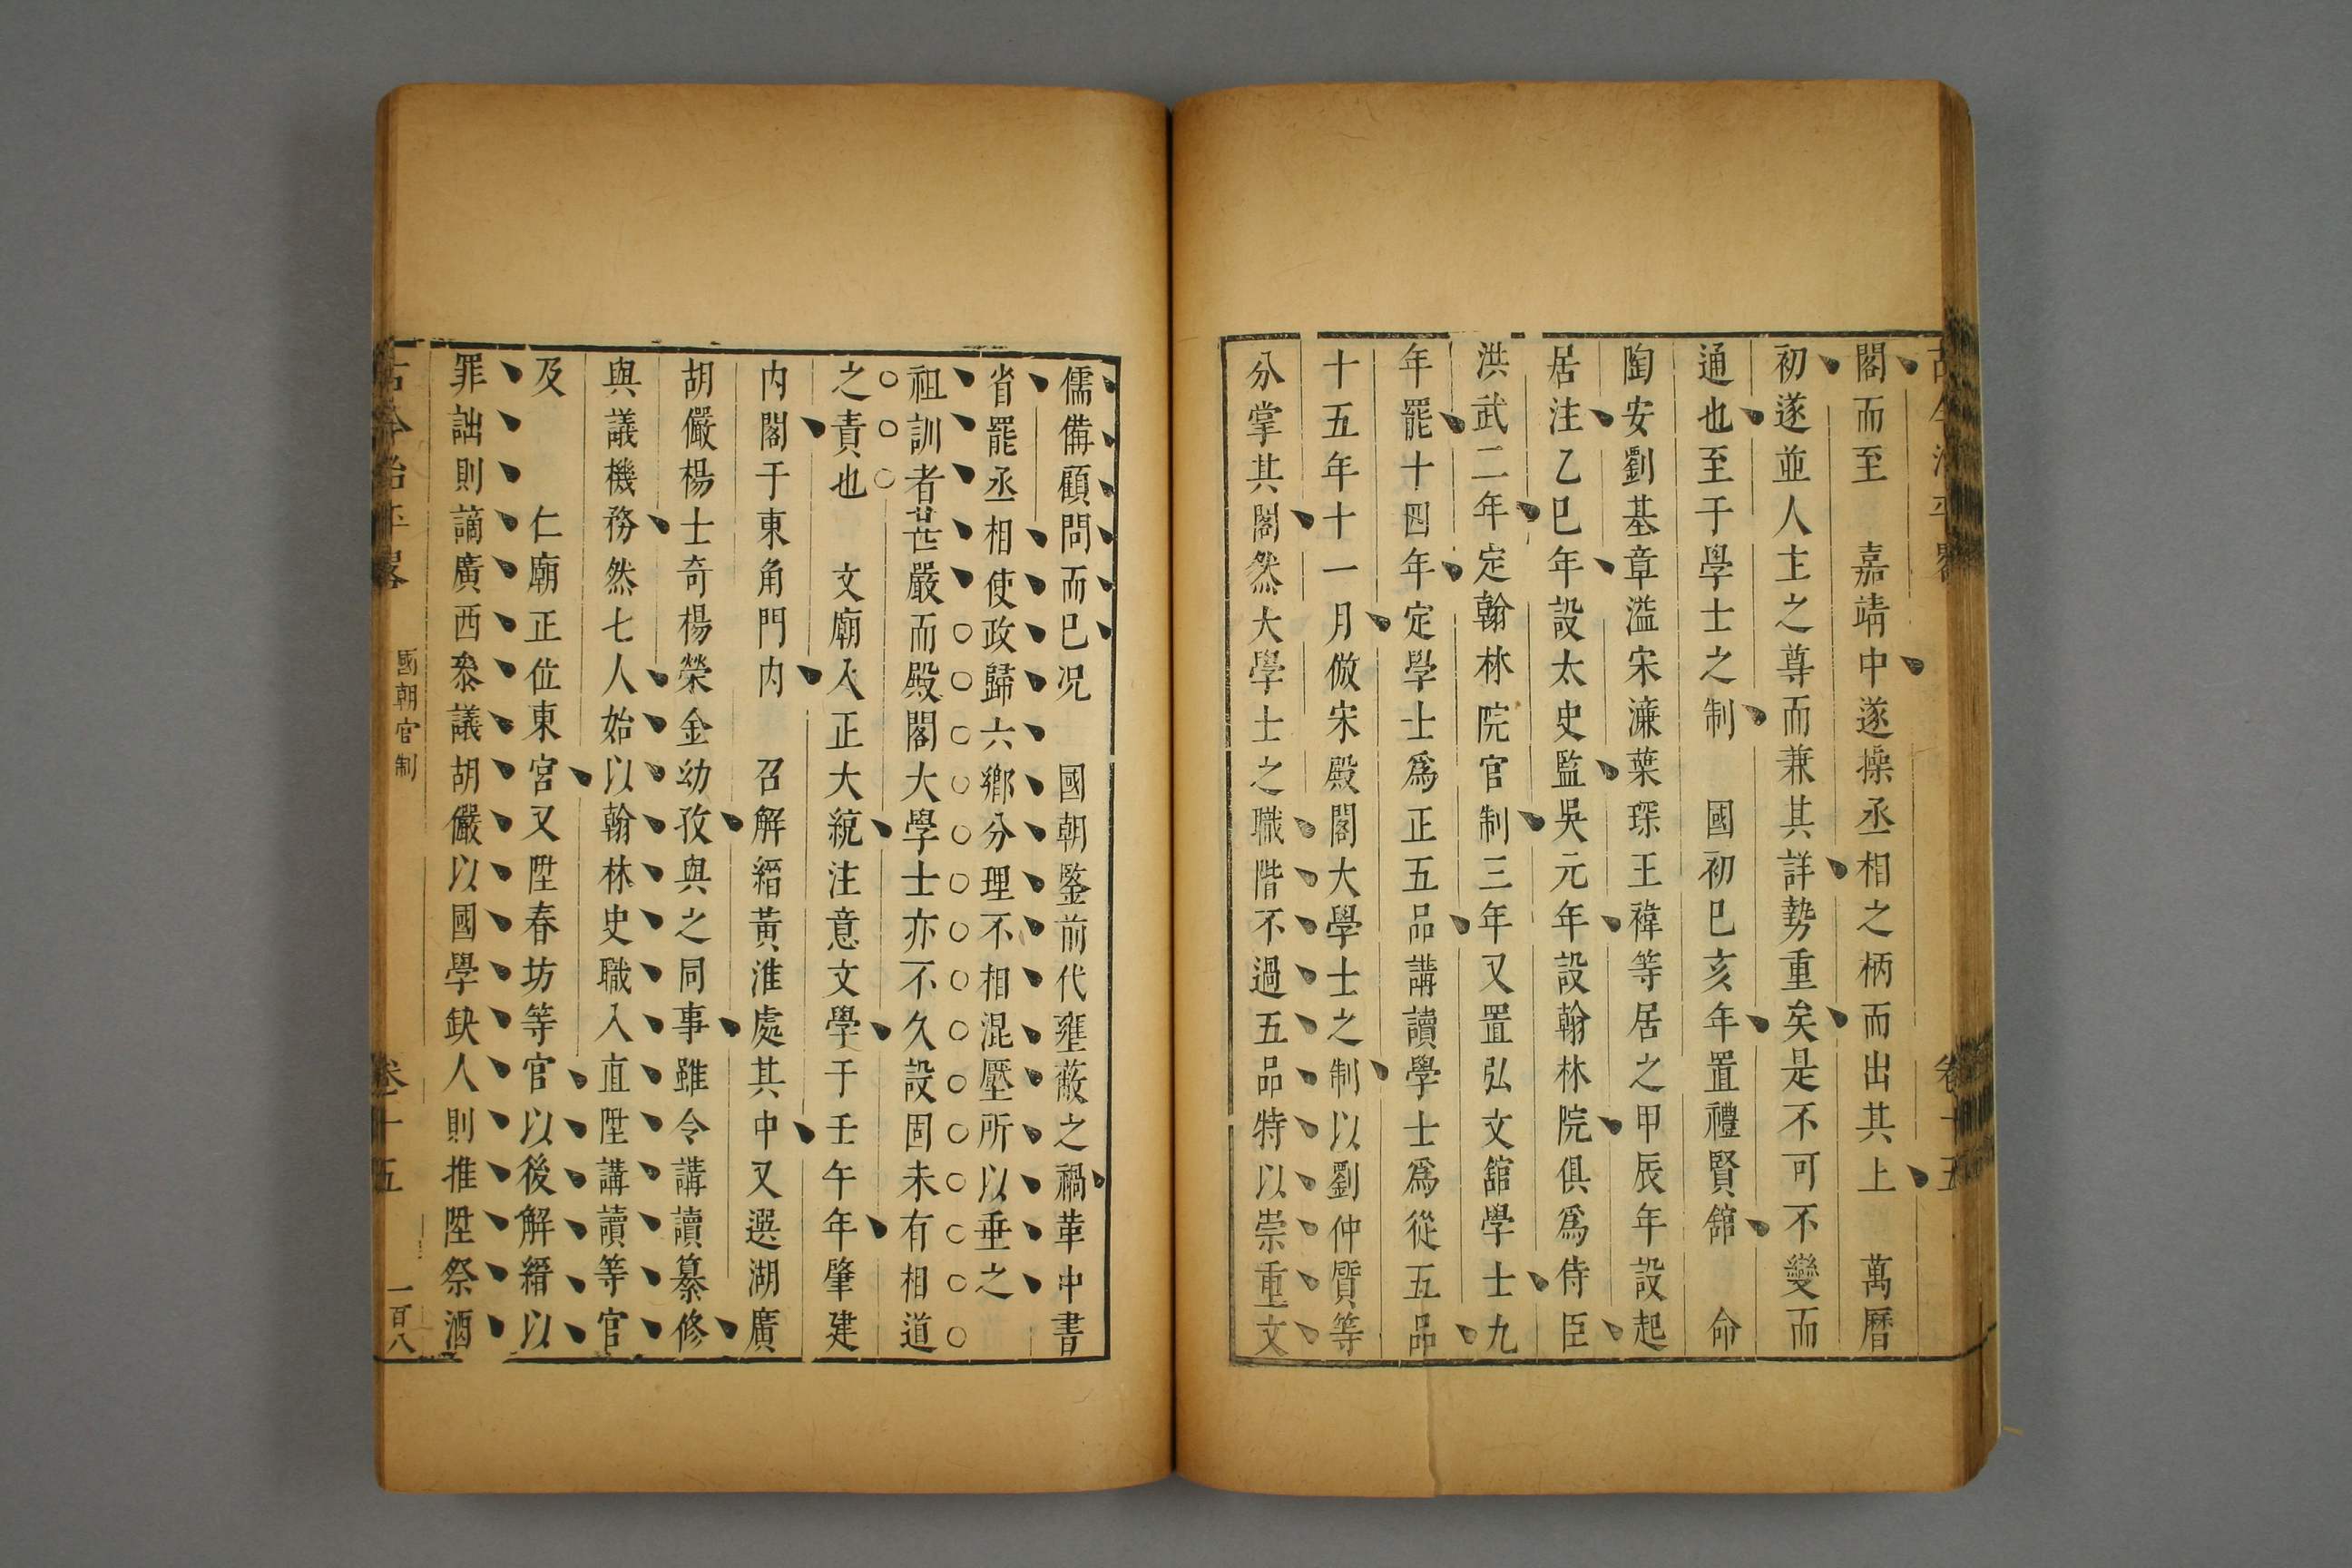 古今治平畧
卷十五
閣而至　嘉靖中遂操丞相之柄而出其上　萬曆
初遂並人主之尊而兼其詳勢重矣是不可不變而
通也至于學士之制　國初已亥年置禮賢舘　命
陶安劉基章溢宋濂葉琛王禕等居之甲辰年設起
居注乙巳年設太史監吳元年設翰林院俱爲侍臣
洪武二年定翰林院官制三年又置弘文舘學士九
年罷十四年定學士爲正五品講讀學士爲從五品
十五年十一月倣宋殿閣大學士之制以劉仲質等
分掌其閣然大學士之職階不過五品特以崇重文
儒備顧問而已况　國朝鑒前代壅蔽之禍革中書
省罷丞相使政歸六鄉分理不相混壓所以垂之
祖訓者甚嚴而殿閣大學士亦不久設固未有相道
之責也　文廟入正大統注意文學于壬午年肇建
内閣于東角門内　召解縉黃淮處其中又選湖廣
胡儼楊士奇楊榮金幼孜與之同事雖令講讀纂修
與議機務然七人始以翰林史職入直陞講讀等官
及　仁廟正位東宮又陞春坊等官以後解縉以
罪詘則謫廣西叅議胡儼以國學缺人則推陞祭酒
古今治平畧
國朝官制
卷十五
一百八